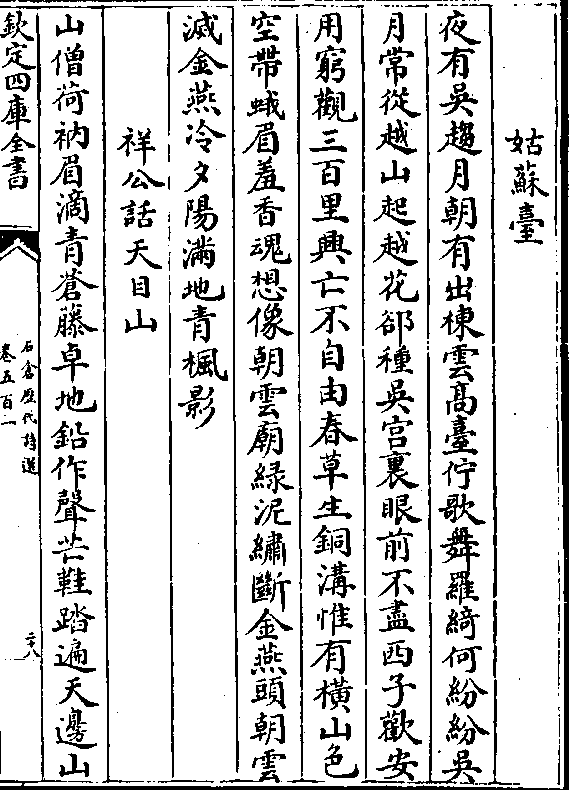 姑蘇臺
夜有吳趨月朝有出棟雲髙臺佇歌舞羅綺何紛紛吳
月常從越山起越花郤種吳宫裏眼前不盡西子歡安
用窮觀三百里興亡不自由春草生銅溝惟有橫山色
空帶蛾眉羞香魂想像朝雲廟綠泥繡斷金燕頭朝雲
滅金燕冷夕陽滿地青楓影
祥公話天目山
山僧荷衲眉滴青蒼藤卓地鉛作聲芒鞋踏遍天邊山
欽定四庫全書
石倉歷代詩選
卷五百一
二十八